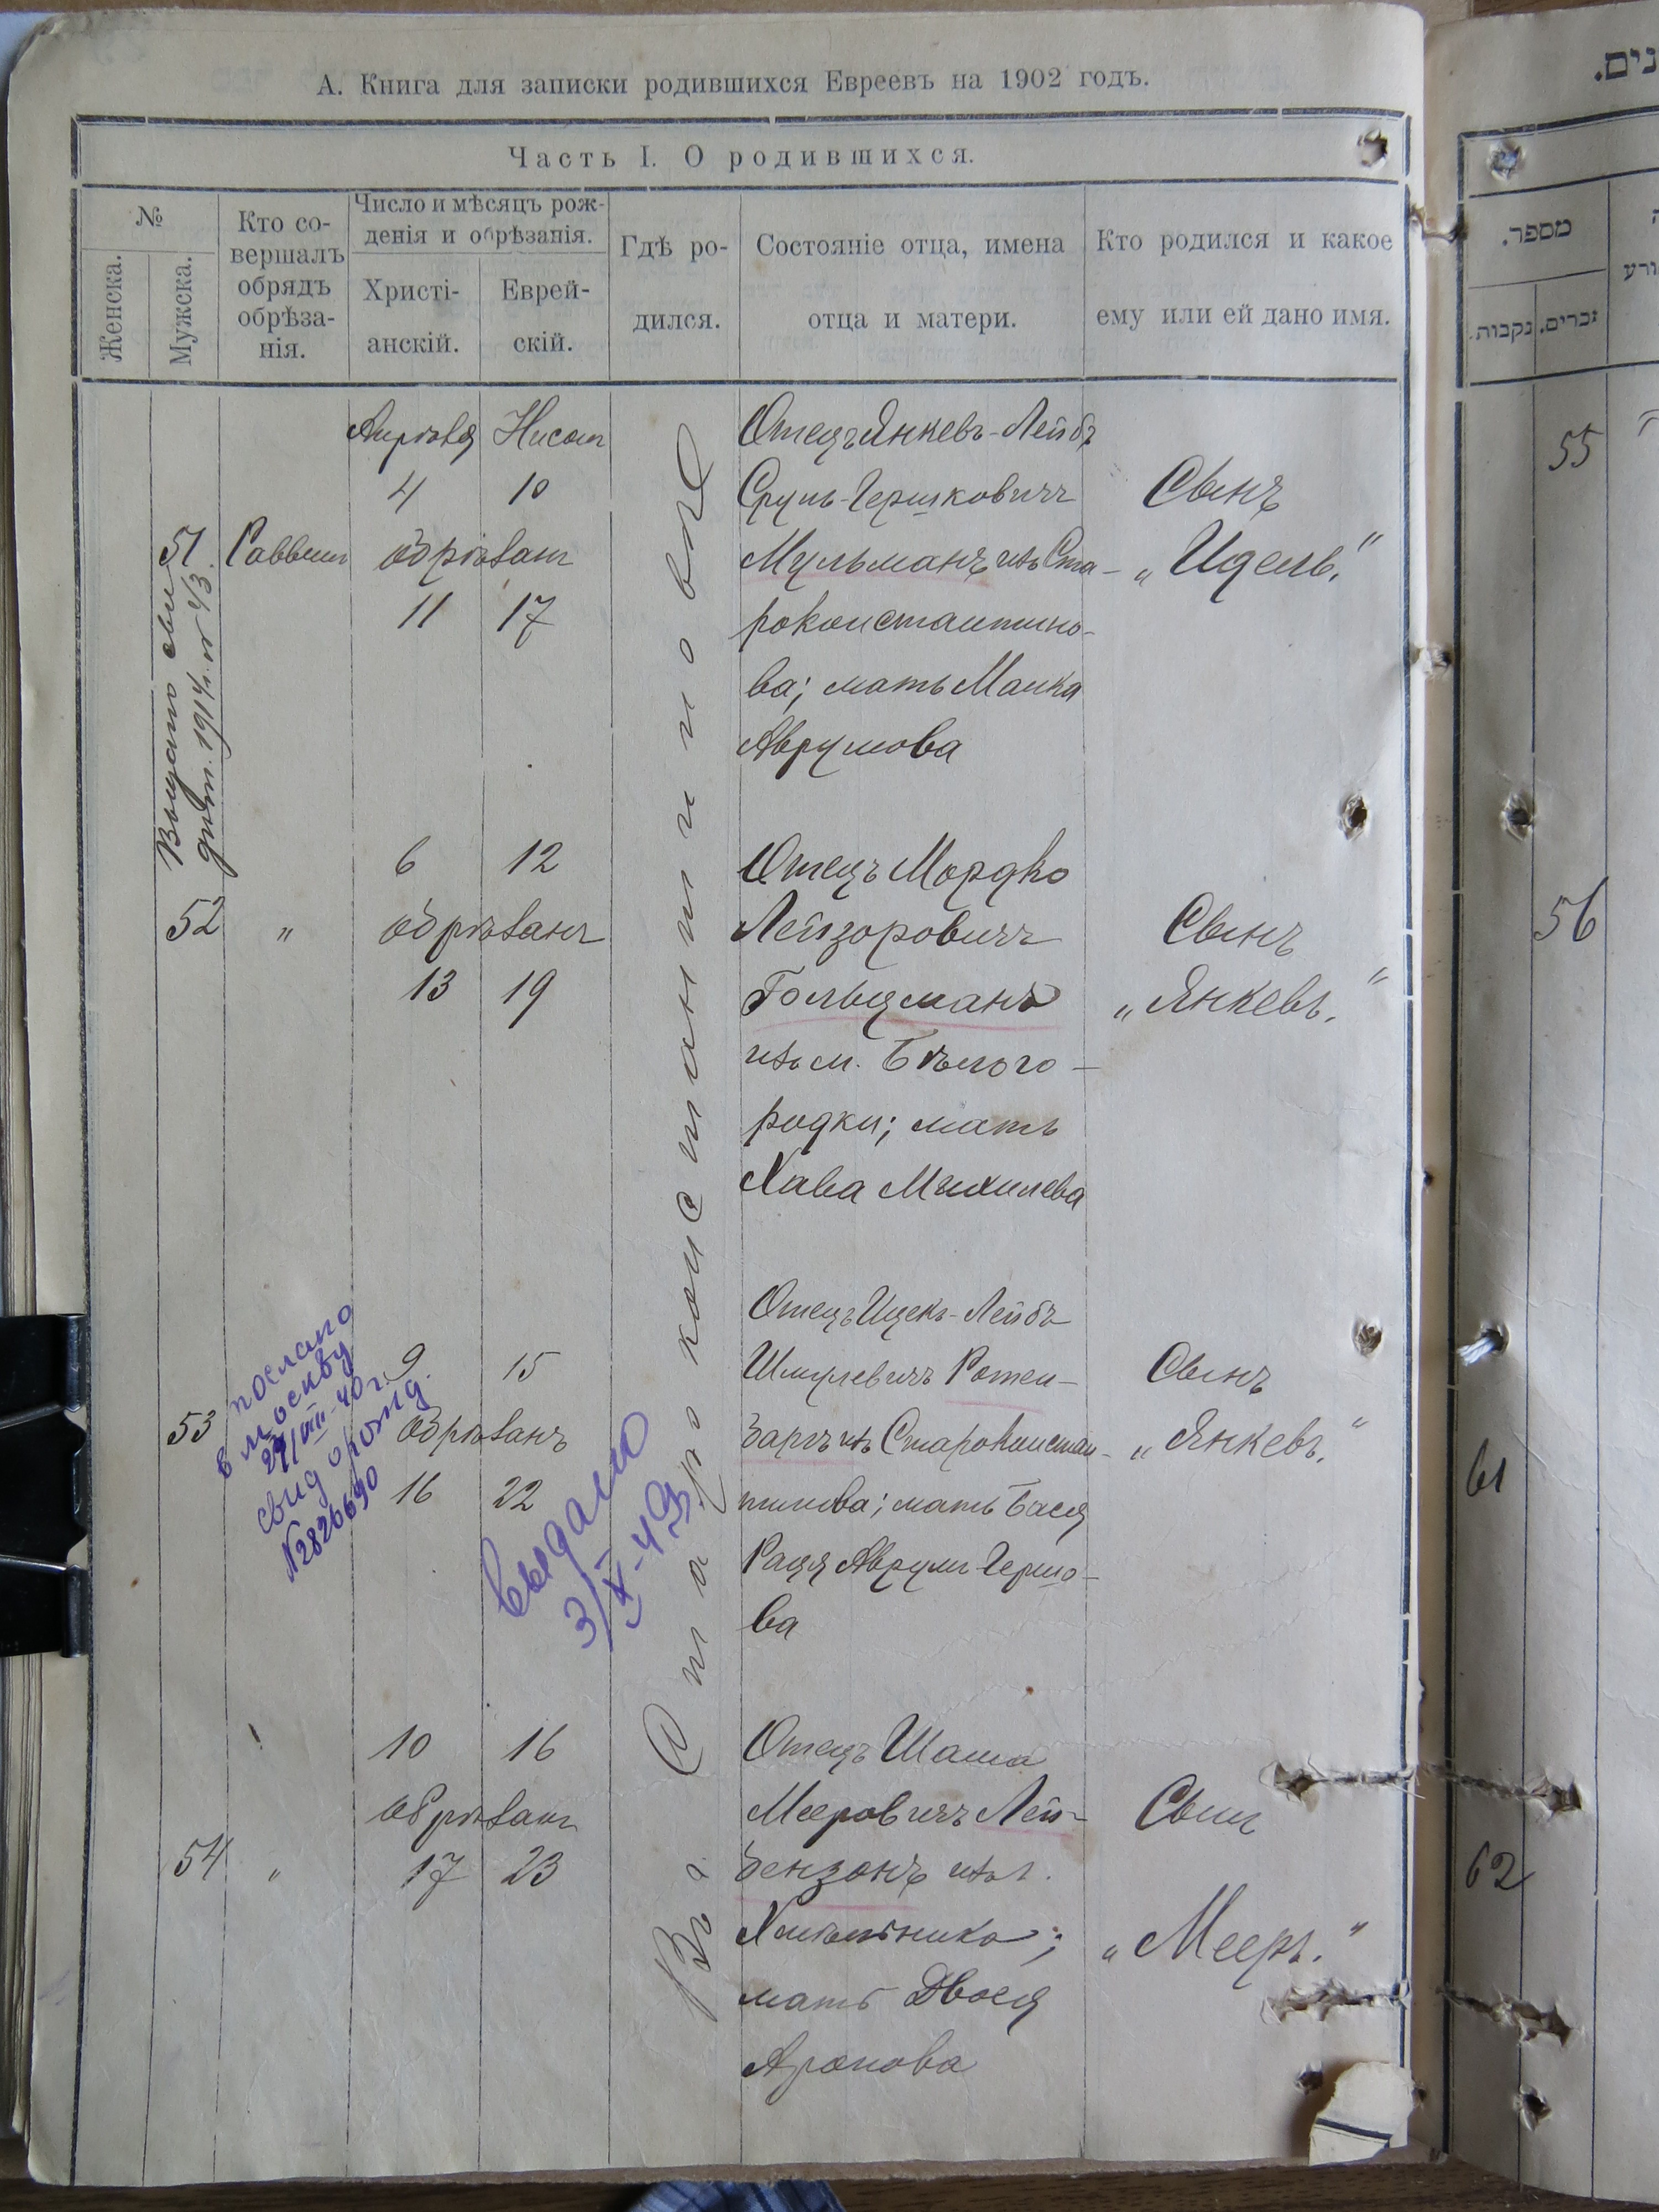 А. Книга для записки родившихся Евреевъ на 1902 годъ.
Часть I. О родившихся.
№
Женска.
Мужска.
Кто со-
вершалъ
обрядъ
обрѣза-
нія.
Число и мѣсяцъ рож-
денія и обрѣзанія.
Христі-
анскій.
Еврей-
скій.
Гдѣ ро-
дился.
Состояніе отца, имена
отца и матери.
Кто родился и какое
ему или ей дано имя.
Въ г. Староконстантиновѣ
Апрѣля Нисонъ
4 10
51 Раввинъ обрѣзанъ
11 17
Выдано сви
дѣт. 1914 г. № 43
Отецъ Янкевъ-Лейбъ
Сруль-Гершковичъ
Мульманъ изъ Ста-
роконстантино-
ва; мать Малка
Аврумова
Сынъ
„Идель."
6 12
52 " обрѣзанъ
13 19
Отецъ Мордко
Лейзоровичъ
Гольцманъ
изъ м. Бѣлого-
родки; мать
Хава Михилева
Сынъ
„Янкевъ."
9 15
53 обрѣзанъ
16 22
послано
в Москву
29/VIII-40 г.
свид о рожд.
№2826690
выдано
3/X-49
Отецъ Ицекъ-Лейбъ
Шмулевичъ Ротен-
баргъ изъ Староконстан-
тинова; мать Бася
Раця Аврум-Гершо-
ва
Сынъ
„Янкевъ."
10 16
обрѣзанъ
54 " 17 23
Отецъ Шаша
Мееровичъ Лей-
бензонъ изъ г.
Хмѣльника;
мать Двося
Аронова
Сынъ
„Мееръ."
נים.
מספר.
זכרים.
נקבות.
ורע
55
56
61
62